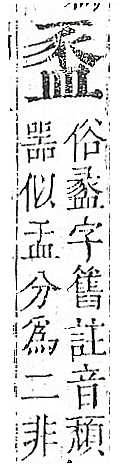 俗盠字舊註音頹
器似盂分爲二非